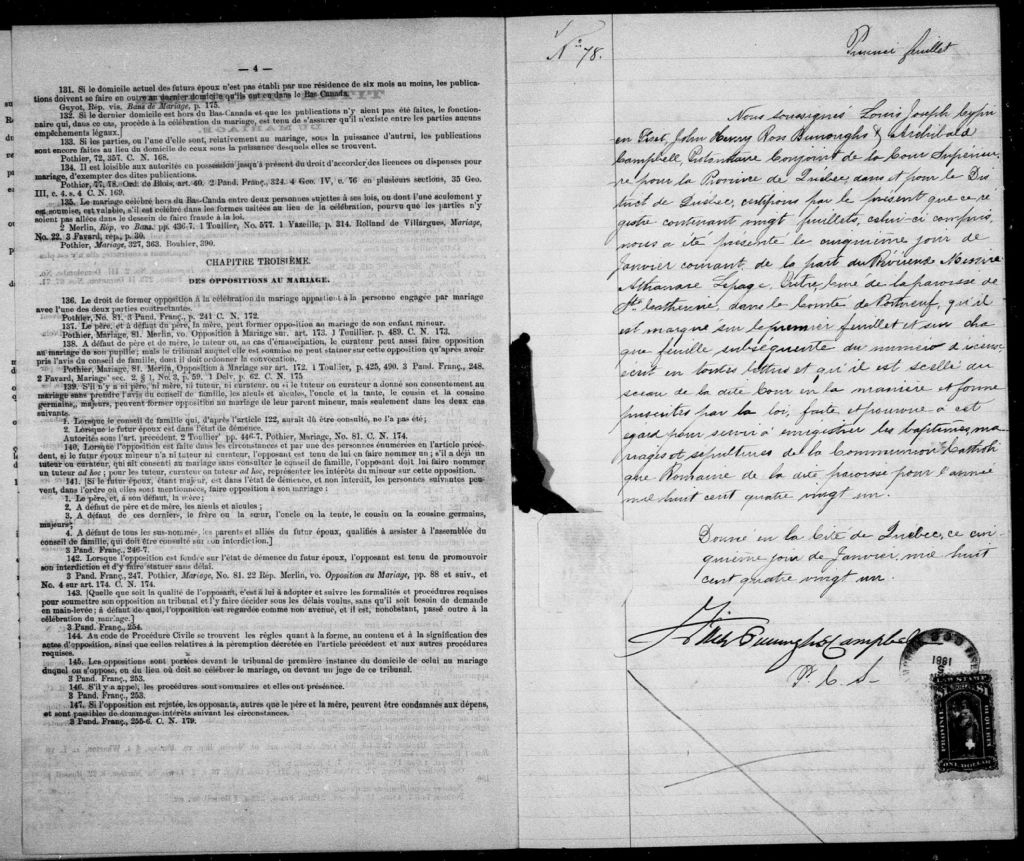 — 4 —
131. Si le domicile actuel des futurs époux n'est pas établi par une résidence de six mois au moins, les publica-
tions doivent se faire en outre au dernier domicile qu'ils ont eu dans le Bas-Canada.
Guyot, Rép. vis. Bans de Mariage, p. 175.
132. Si le dernier domicile est hors du Bas-Canada et que les publications n'y aient pas été faites, le fonction-
naire qui, dans ce cas, procède à la célébration du mariage, est tenu de s'assurer qu'il n'existe entre les parties aucuns
empêchements légaux.]
133. Si les parties, ou l'une d'elle sont, relativement au mariage, sous la puissance d'autrui, les publications
sont encore faites au lieu du domicile de ceux sous la puissance desquels elles se trouvent.
Pothier, 72, 357. C. N. 168.
134. Il est loisible aux autorités en possession jusqu'à présent du droit d'accorder des licences ou dispenses pour
mariage, d'exempter des dites publications.
Pothier, 77, 78. Ord. de Blois, art. 40. 2 Pand. Franç., 324. 4 Geo. IV, c. 76 en plusieurs sections, 35 Geo.
III, c. 4. s. 4 C. N. 169.
135. Le mariage célébré hors du Bas-Canada entre deux personnes sujettes à ses lois, ou dont l'une seulement y
est soumise, est valable, s'il est célébré dans les formes usitées au lieu de la célébration, pourvu que les parties n'y
soient pas allées dans le dessein de faire fraude à la loi.
2 Merlin, Rép, vo Bans. pp. 436-7. 1 Toullier, No. 577. 1 Vazeille, p. 314. Rolland de Villargues, Mariage,
No. 22. 3 Favard, rép., p. 39.
Pothier, Mariage, 327, 363. Bouhier, 390.
CHAPITRE TROISIÈME.
DES OPPOSITIONS AU MARIAGE.
136. Le droit de former opposition à la célébration du mariage appartient à la personne engagée par mariage
avec l'une des deux parties contractantes.
Pothier, No. 81. 3 Pand. Franç., p. 241 C. N. 172.
137. Le père, et à défaut du père, la mère, peut former opposition au mariage de son enfant mineur.
Pothier, Mariage, 81. Merlin, vo. Opposition à Mariage sur. art. 173. 1 Touillier. p. 489. C. N. 173.
138. A défaut de père et de mère, le tuteur ou, au cas d'émancipation, le curateur peut aussi faire opposition
au mariage de son pupille; mais le tribunal auquel elle est soumise ne peut statuer sur cette opposition qu'après avoir
pris l'avis du conseil de famille, dont il doit ordonner la convocation.
Pothier, Mariage, 81. Merlin, Opposition à Mariage sur art. 172. 1 Toullier, p. 425, 490. 3 Pand. Franç., 248.
2 Favard, Mariage' sec. 2. § 1, No. 3, p. 59. 1 Delv. p. 62. C. N. 175
139. S'il n'y a ni père, ni mère, ni tuteur, ni curateur, ou si le tuteur ou curateur a donné son consentement au
mariage sans prendre l'avis du conseil de famille, les aïeuls et aïeules, l'oncle et la tante, le cousin et la cousine
germains, majeurs, peuvent former opposition au mariage de leur parent mineur, mais seulement dans les deux cas
suivants.
1. Lorsque le conseil de famille qui, d'après l'article 122, aurait dû être consulté, ne l'a pas été;
2. Lorsque le futur époux est dans l'état de démence.
Autorités sous l'art. précédent. 2 Toullier' pp. 446-7. Pothier, Mariage, No. 81. C. N. 174.
140. Lorsque l'opposition est faite dans les circonstances et par une des personnes énumérées en l'article précé-
dent, si le futur époux mineur n'a ni tuteur ni curateur, l'opposant est tenu de lui en faire nommer un; s'il a déjà un
tuteur ou curateur, qui ait consenti au mariage sans consulter le conseil de famille, l'opposant doit lui faire nommer
un tuteur ad hoc; pour les tuteur, curateur ou tuteur ad hoc, représenter les intérêts du mineur sur cette opposition.
141. [Si le futur époux, étant majeur, est dans l'état de démence, et non interdit, les personnes suivantes peu-
vent, dans l'ordre où elles sont mentionnées, faire opposition à son mariage:
1. Le père, et, à son défaut, la mère;
2. A défaut de père et de mère, les aïeuls et aïeules;
3. A défaut de ces derniers, le frère ou la sœur, l'oncle ou la tante, le cousin ou la cousine germains,
majeurs;
4. A défaut de tous les sus-nommés, les parents et alliés du futur époux, qualifiés à assister à l'assemblée du
conseil de famille, qui doit être consulté sur son interdiction.]
3 Pand. Franç., 246-7.
142. Lorsque l'opposition est fondée sur l'état de démence du futur époux, l'opposant est tenu de promouvoir
son interdiction et d'y faire statuer sans délai.
3 Pand. Franç., 247. Pothier, Mariage, No. 81. 22 Rép. Merlin, vo. Opposition au Mariage, pp. 88 et suiv., et
No. 4 sur art. 174. C. N. 174.
143. [Quelque soit la qualité de l'opposant, c'est à lui à adopter et suivre les formalités et procédures requises
pour soumettre son opposition au tribunal et l'y faire décider sous les délais voulus, sans qu'il soit besoin de demande
en main-levée; à défaut de quoi, l'opposition est regardée comme non avenue, et il est, nonobstant, passé outre à la
célébration du mariage.]
3 Pand. Franç., 254.
144. Au code de Procédure Civile se trouvent les règles quant à la forme, au contenu et à la signification des
actes d'opposition, ainsi que celles relatives à la péremption décrétée en l'article précédent et aux autres procédures
requises.
145. Les oppositions sont portées devant le tribunal de première instance du domicile de celui au mariage
duquel on s'oppose, ou du lieu où doit se célébrer le mariage, ou devant un juge de ce tribunal.
3 Pand. Franç., 253.
146. S'il y a appel, les procédures sont sommaires et elles ont présence.
3 Pand. Franç., 253.
147. Si l'opposition est rejetée, les opposants, autres que le père et la mère, peuvent être condamnés aux dépens,
et sont passibles de dommages-intérêts suivant les circonstances.
3 Pand. Franç., 255-6. C. N. 179.
No 78.
Premier feuillet
Nous soussignés Louis Joseph Cyprien
Fiset, John Henry Ross Burroughs & Archibald
Campbell, Protonotaire Conjoint de la Cour Supérieu-
re pour la Province de Québec, dans et pour le Dis-
trict de Québec, certifions par le présent que ce re-
gistre contenant vingt feuillets, celui-ci compris,
nous a été présenté le cinquième jour de
Janvier courant, de la part du Révérend Messire
Athanase Lepage, Prêtre, Curé de la paroisse de
Ste Catherine, dans le Comté de Portneuf, qu'il
est marqué sur le premier feuillet et sur cha-
que feuille subséquente du numéro d'icelui
écrit en toutes lettres et qu'il est scellé du
sceau de la dite Cour en la manière et forme
prescrites par la loi, faite et pourvue à cet
égard pour servir à enregistrer les baptêmes, ma-
riages et sépultures de la Communion Catholi-
que Romaine de la dite paroisse pour l'année
mil huit cent quatre vingt un.
Donné en la Cité de Québec, ce cin-
quième jour de Janvier mil huit
cent quatre vingt un.
Fiset Burroughs & Campbell
P. C. S.
1881
LAW STAMP
$1 $1
PROVINCE
DE QUEBEC
ONE DOLLAR